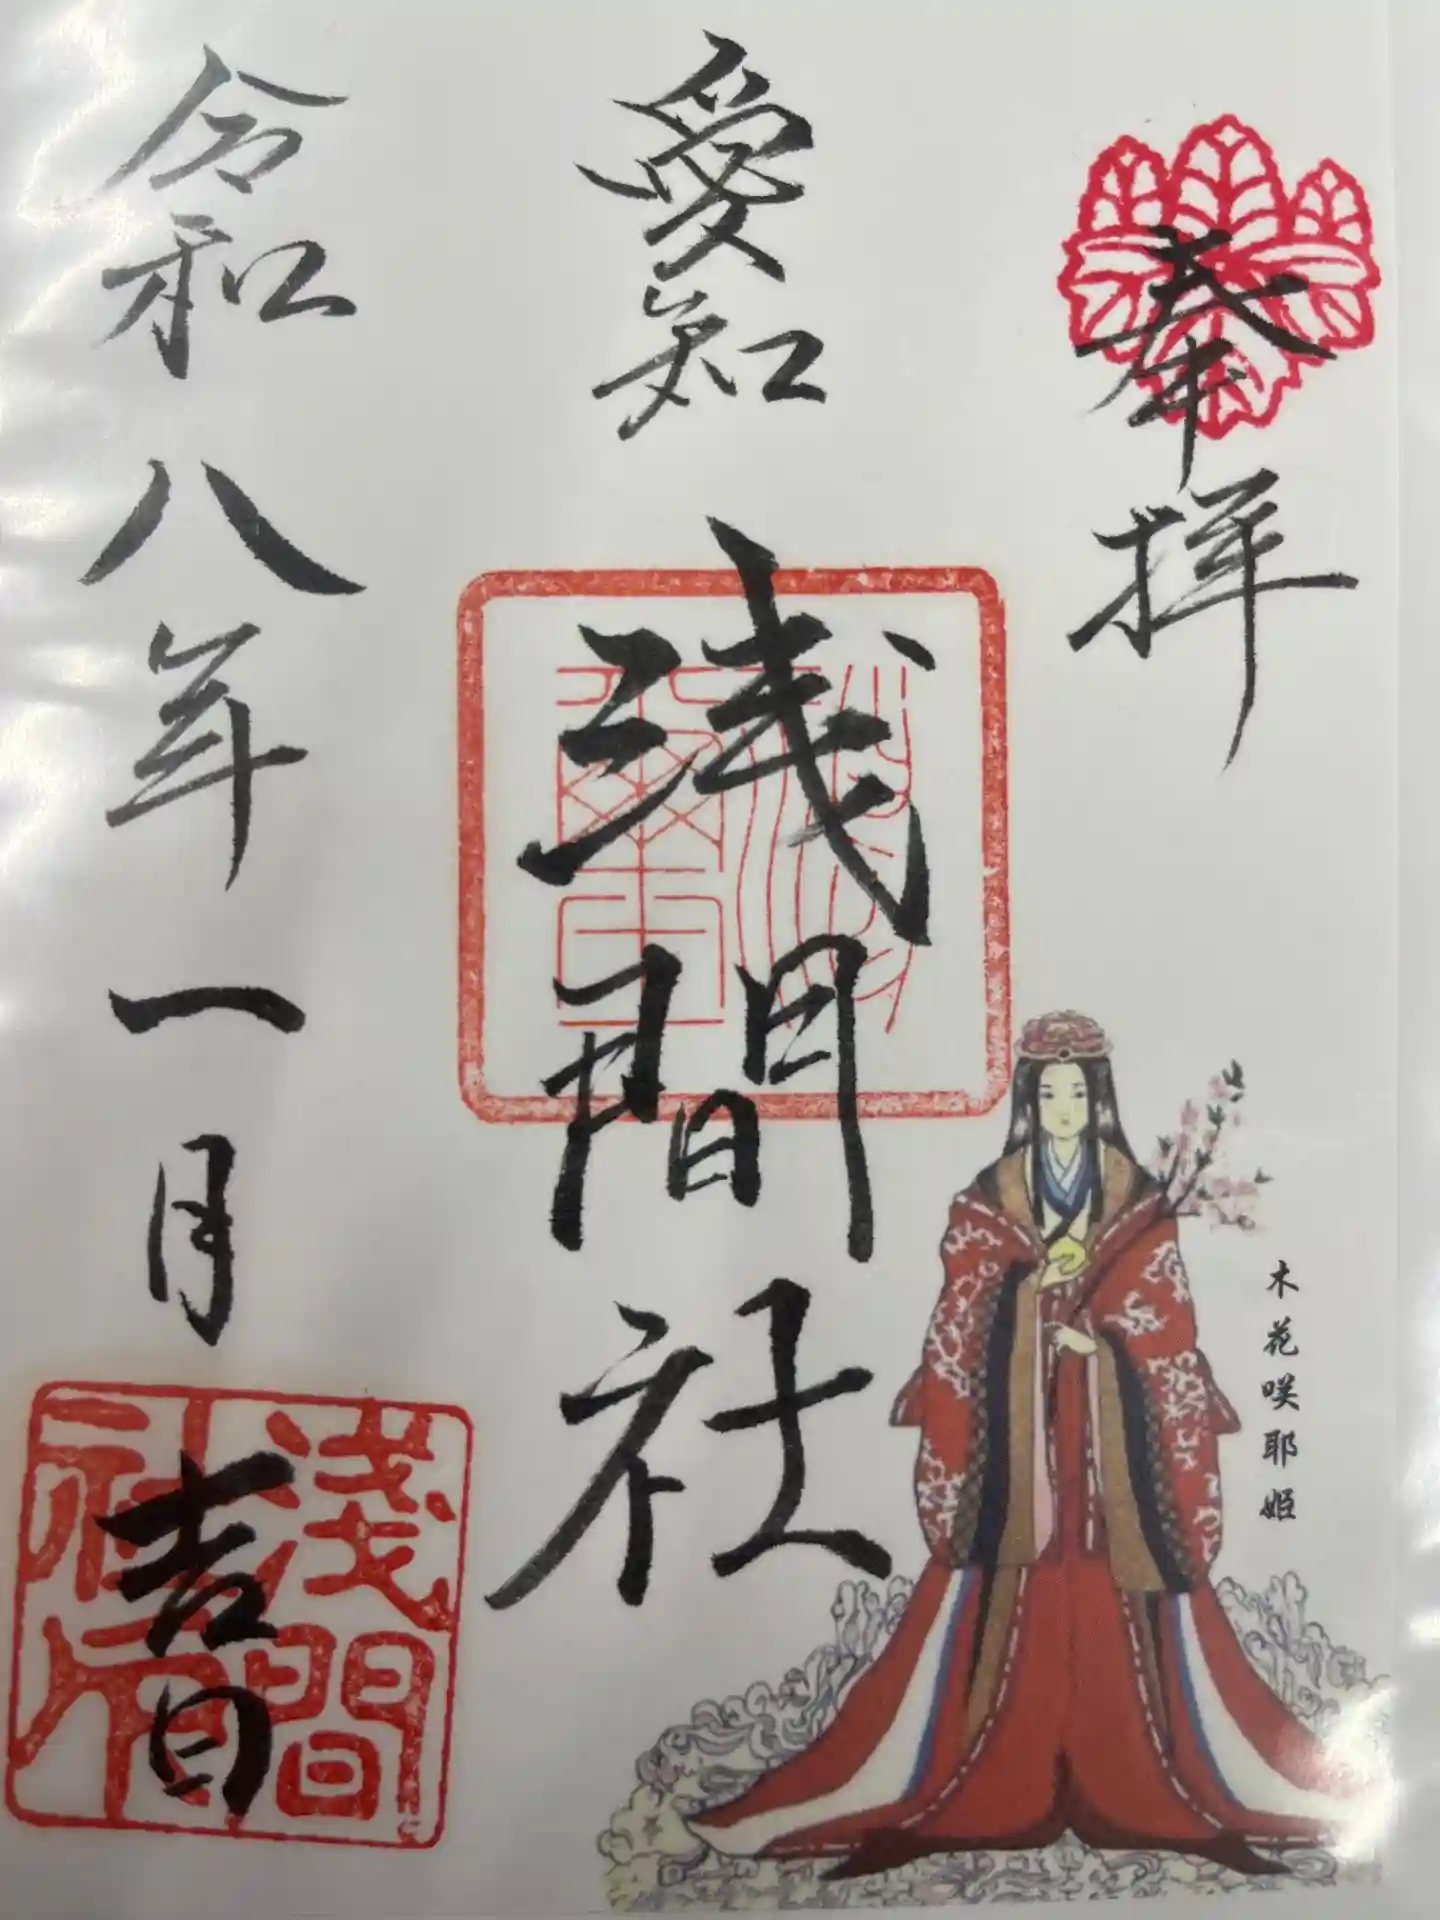 奉拝
愛知
浅間社
木花咲耶姫
令和八年一月
吉日
淺間
社印